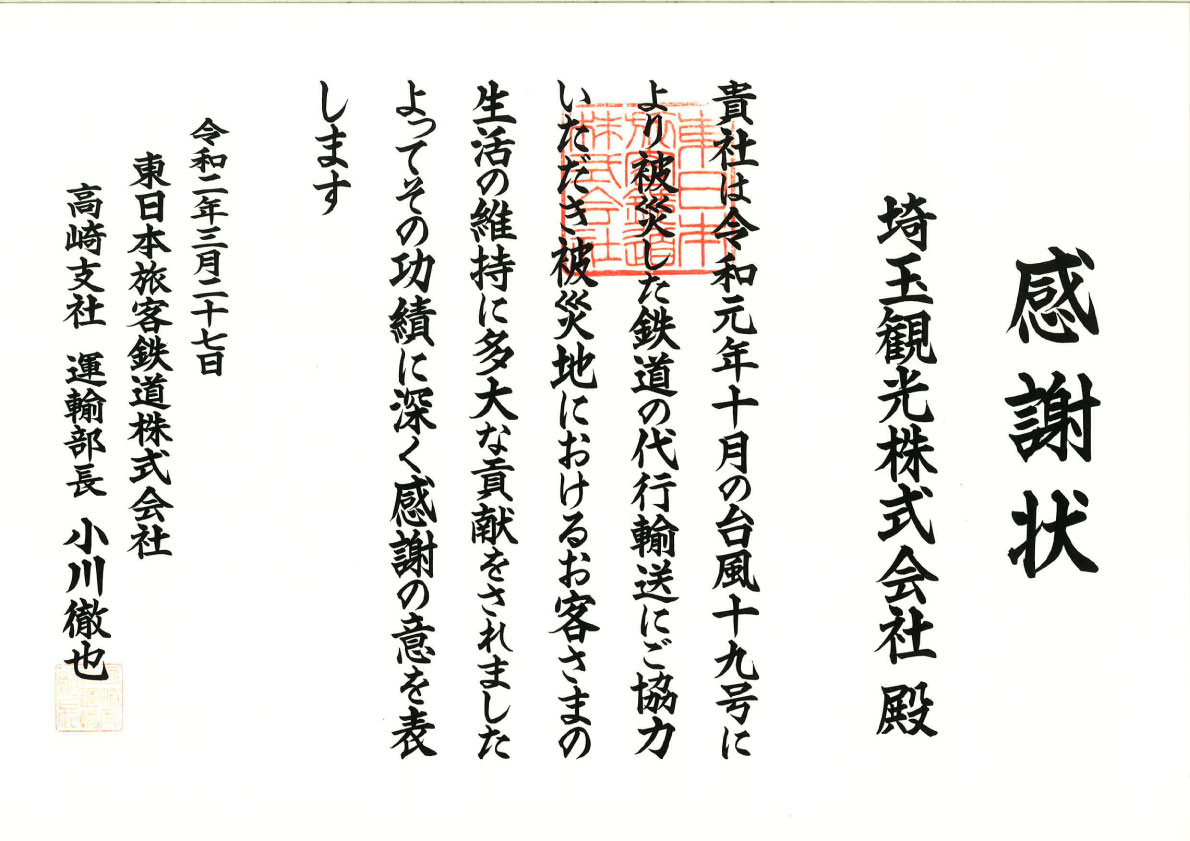 感謝状
埼玉観光株式会社 殿
貴社は令和元年十月の台風十九号に
より被災した鉄道の代行輸送にご協力
いただき被災地におけるお客さまの
生活の維持に多大な貢献をされました
よってその功績に深く感謝の意を表
します
令和二年三月二十七日
東日本旅客鉄道株式会社
高崎支社 運輸部長 小川徹也
東日本
旅客鉄道
株式会社